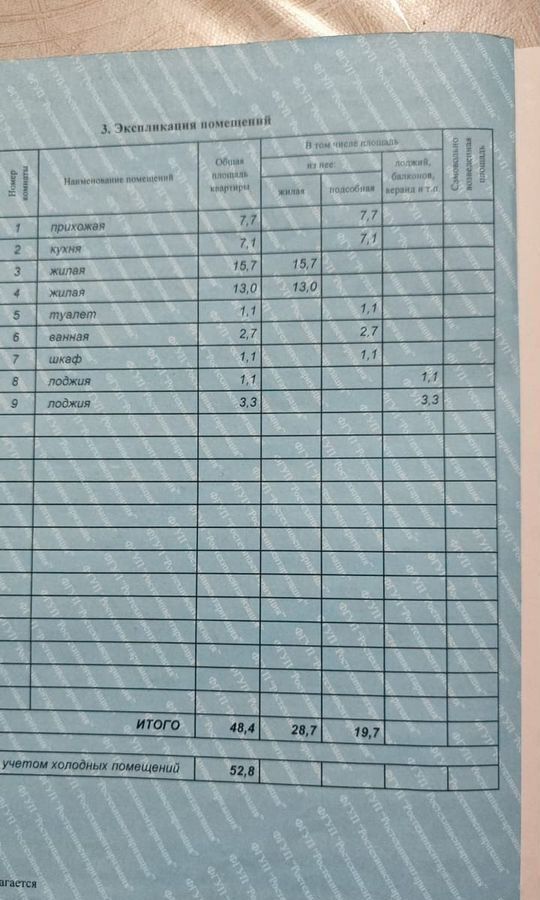 3. Экспликация помещений
Номер комнаты
Наименование помещений
Общая площадь квартиры
В том числе площадь
из нее:
жилая
подсобная
лоджий, балконов, веранд и т.п.
Самовольно возведенная площадь
1 прихожая 7,7 7,7
2 кухня 7,1 7,1
3 жилая 15,7 15,7
4 жилая 13,0 13,0
5 туалет 1,1 1,1
6 ванная 2,7 2,7
7 шкаф 1,1 1,1
8 лоджия 1,1 1,1
9 лоджия 3,3 3,3
ИТОГО 48,4 28,7 19,7
учетом холодных помещений 52,8
агается
ФГУП "Ростехинвентаризация"